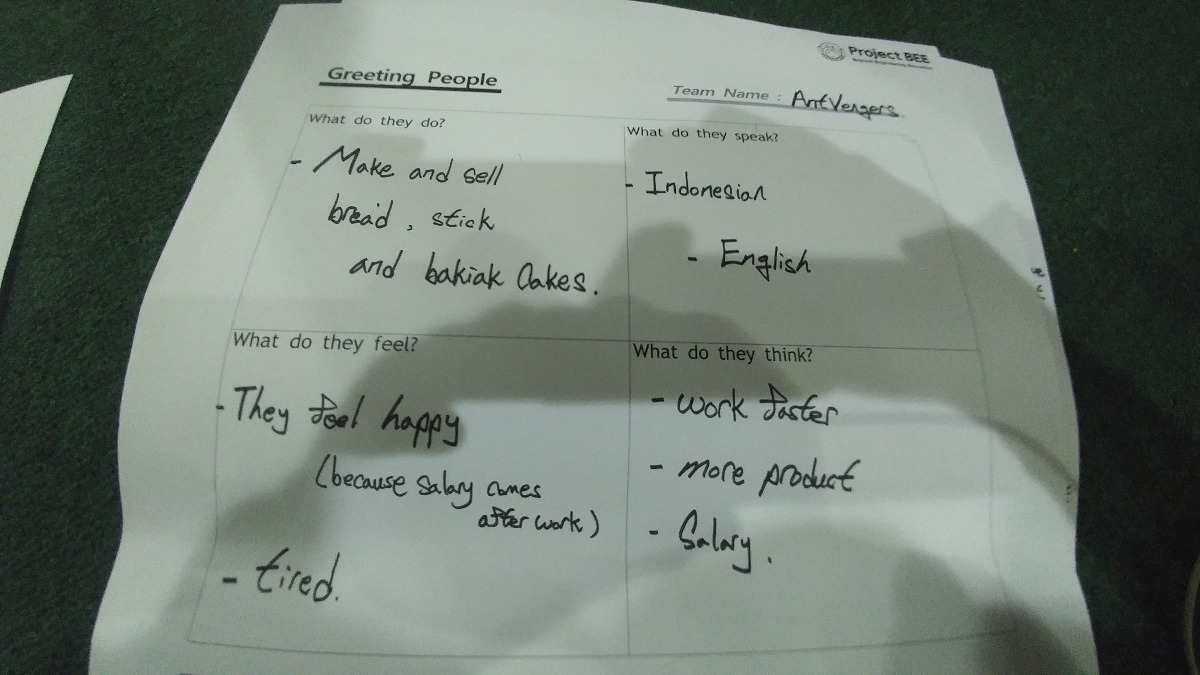 Project BEE
Greeting People
Team Name : AntVengers
What do they do?
- Make and sell
bread, stick
and bakiak Cakes.
What do they speak?
- Indonesian
- English
What do they feel?
- They feel happy
(because salary comes
after work)
- tired.
What do they think?
- work faster
- more product
- Salary.